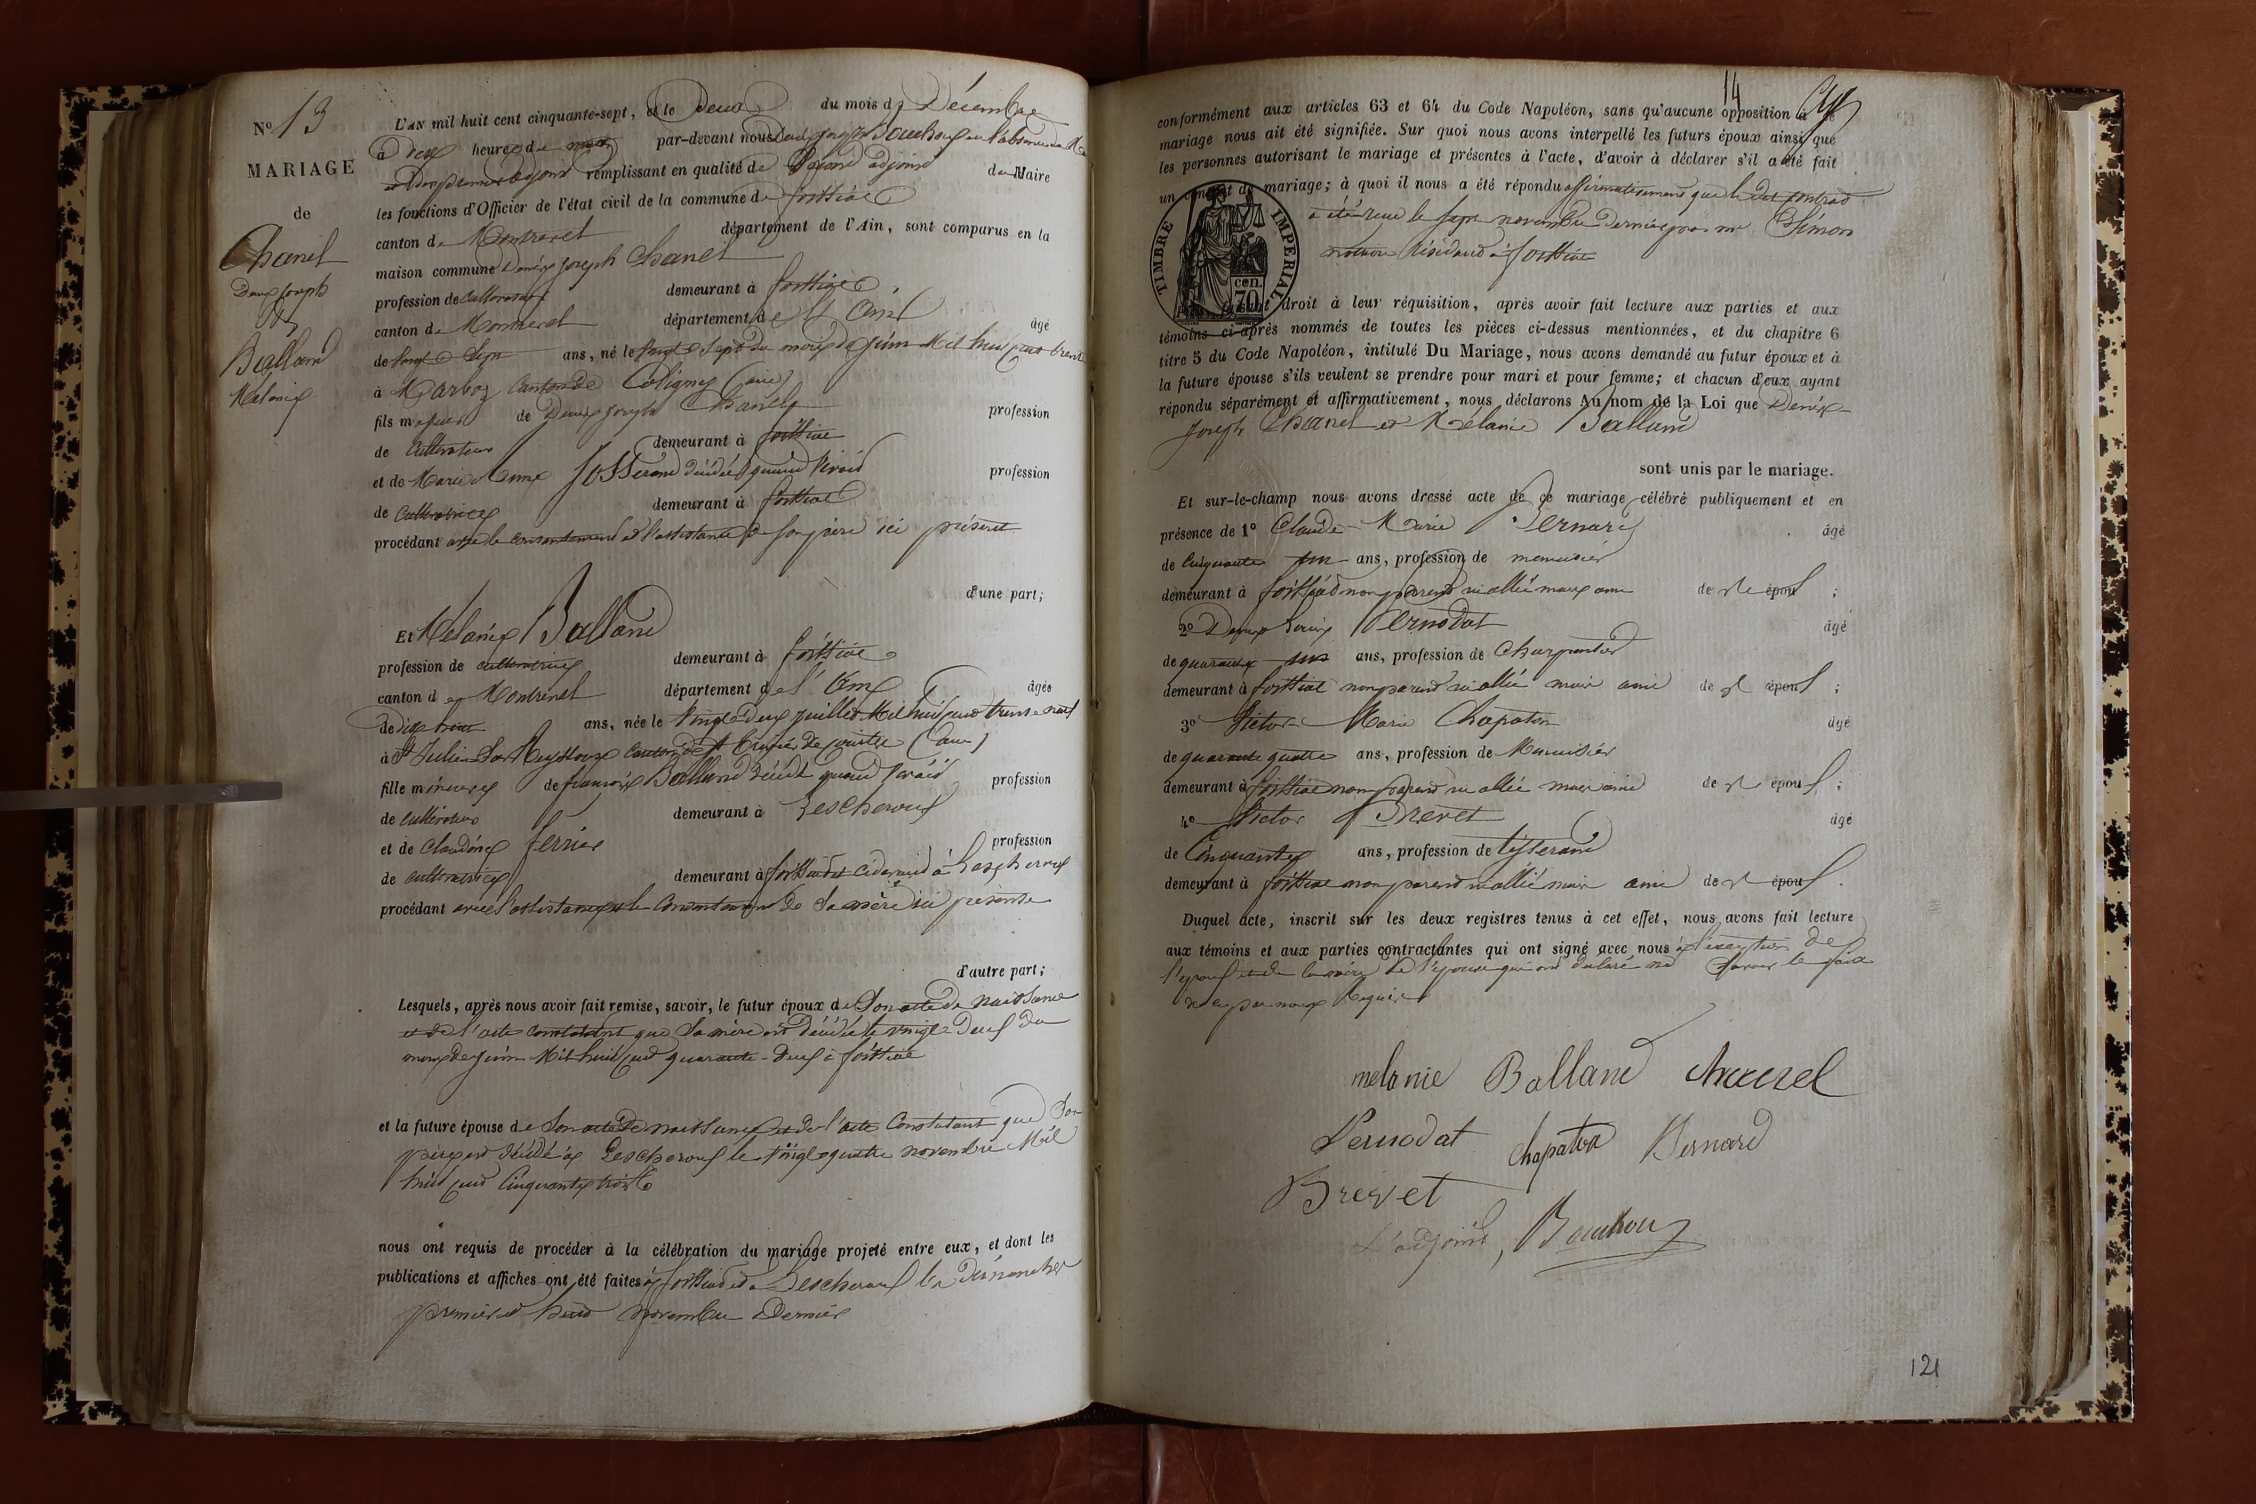 N° 13
MARIAGE
de
Chanel
Denis Joseph
Balland
Mélanie
L'AN mil huit cent cinquante-sept, et le Deux du mois de Décembre
à dix heures de par-devant nous Denis Joseph Bouchoux en l'absence du
remplissant en qualité de Second adjoint du Maire
les fonctions d'Officier de l'état civil de la commune de foissiat
canton de Montrevel département de l'Ain, sont comparus en la
maison commune Denis Joseph Chanel
profession de cultivateur demeurant à foissiat
canton de Montrevel département de l'Ain âgé
de vingt Sept ans, né le vingt Sept du mois de juin Mil huit cent trente
à Marboz canton de Coligny (ain)
fils majeur de Denis Joseph Chanel profession
de Cultivateur demeurant à foissiat
et de Marie Anne Josserand décédée quand vivait profession
de Cultivatrice demeurant à foissiat
procédant avec le consentement et l'assistance de son père ici présent
d'une part;
Et Mélanie Balland
profession de cultivatrice demeurant à foissiat
canton de Montrevel département de l'Ain âgée
de dix huit ans, née le vingt Deux juillet Mil huit cent trente neuf
à St Julien Sur Reyssouze canton de St Trivier de courtes (ain)
fille mineure de françois Balland décédé quand vivait profession
de cultivateur demeurant à Lescheroux
et de Claudine ferrier profession
de cultivatrice demeurant à foissiat et ci devant à Lescheroux
procédant avec l'assistance et le Consentement de Sa mère ici présente
d'autre part;
Lesquels, après nous avoir fait remise, savoir, le futur époux de Son acte de naissance
et de l'acte constatant que Sa mère est décédée le vingt Deux du
mois de juin Mil huit cent quarante-deux à foissiat
et la future épouse de Son acte de naissance et de l'acte Constatant que Son
père est décédé à Lescheroux le vingt quatre novembre Mil
huit cent Cinquante trois
nous ont requis de procéder à la célébration du mariage projeté entre eux, et dont les
publications et affiches ont été faites à foissiat et à Lescheroux les Dimanches
premier et huit novembre Dernier
14
conformément aux articles 63 et 64 du Code Napoléon, sans qu'aucune opposition à ce
mariage nous ait été signifiée. Sur quoi nous avons interpellé les futurs époux ainsi que
les personnes autorisant le mariage et présentes à l'acte, d'avoir à déclarer s'il a été fait
un contrat de mariage; à quoi il nous a été répondu affirmativement que le dit contrat
a été reçu le Sept novembre Dernier par me Simon
notaire Résidant à foissiat
TIMBRE IMPERIAL
70 cen.
faisant droit à leur réquisition, après avoir fait lecture aux parties et aux
témoins ci-après nommés de toutes les pièces ci-dessus mentionnées, et du chapitre 6
titre 5 du Code Napoléon, intitulé Du Mariage, nous avons demandé au futur époux et à
la future épouse s'ils veulent se prendre pour mari et pour femme; et chacun d'eux ayant
répondu séparément et affirmativement, nous déclarons Au nom de la Loi que Denis
Joseph Chanel et Mélanie Balland
sont unis par le mariage.
Et sur-le-champ nous avons dressé acte de ce mariage célébré publiquement et en
présence de 1° Claude Marie Bernard âgé
de Cinquante un ans, profession de menuisier
demeurant à foissiat non parent ni allié mais ami de l'époux;
2° Denis Louis Pernodat âgé
de quarante un ans, profession de Charpentier
demeurant à foissiat non parent ni allié mais ami de l'époux;
3° Victor Marie Chapaton âgé
de quarante quatre ans, profession de Menuisier
demeurant à foissiat non parent ni allié mais ami de l'époux;
4° Victor Brevet âgé
de Cinquante ans, profession de tisserand
demeurant à foissiat non parent ni allié mais ami de l'époux.
Duquel acte, inscrit sur les deux registres tenus à cet effet, nous avons fait lecture
aux témoins et aux parties contractantes qui ont signé avec nous à l'exception de
l'époux et de la mère de l'épouse qui ont déclaré ne Savoir le faire
de ce par nous Requis
melanie Balland Chanel
Pernodat chapaton Bernard
Brevet
L'adjoint, Bouchoux
121